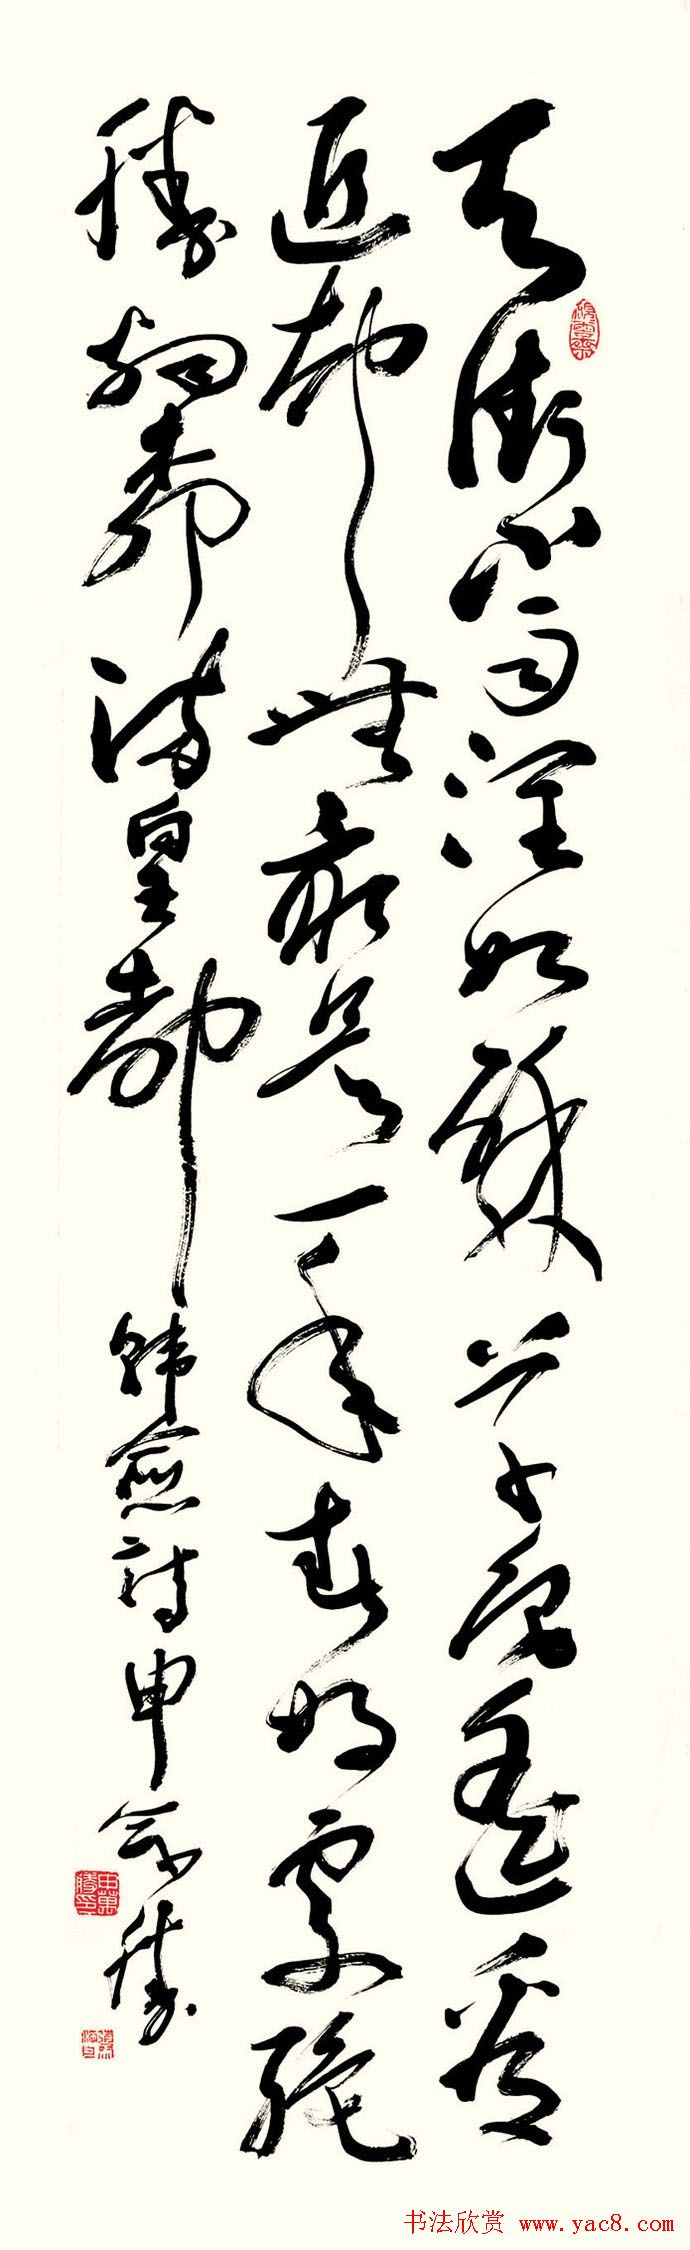 天街小雨润如酥草色遥看
近却無最是一年春好處绝
勝烟柳满皇都韩愈诗申万勝
申萬勝印
书法欣赏 www.yac8.com